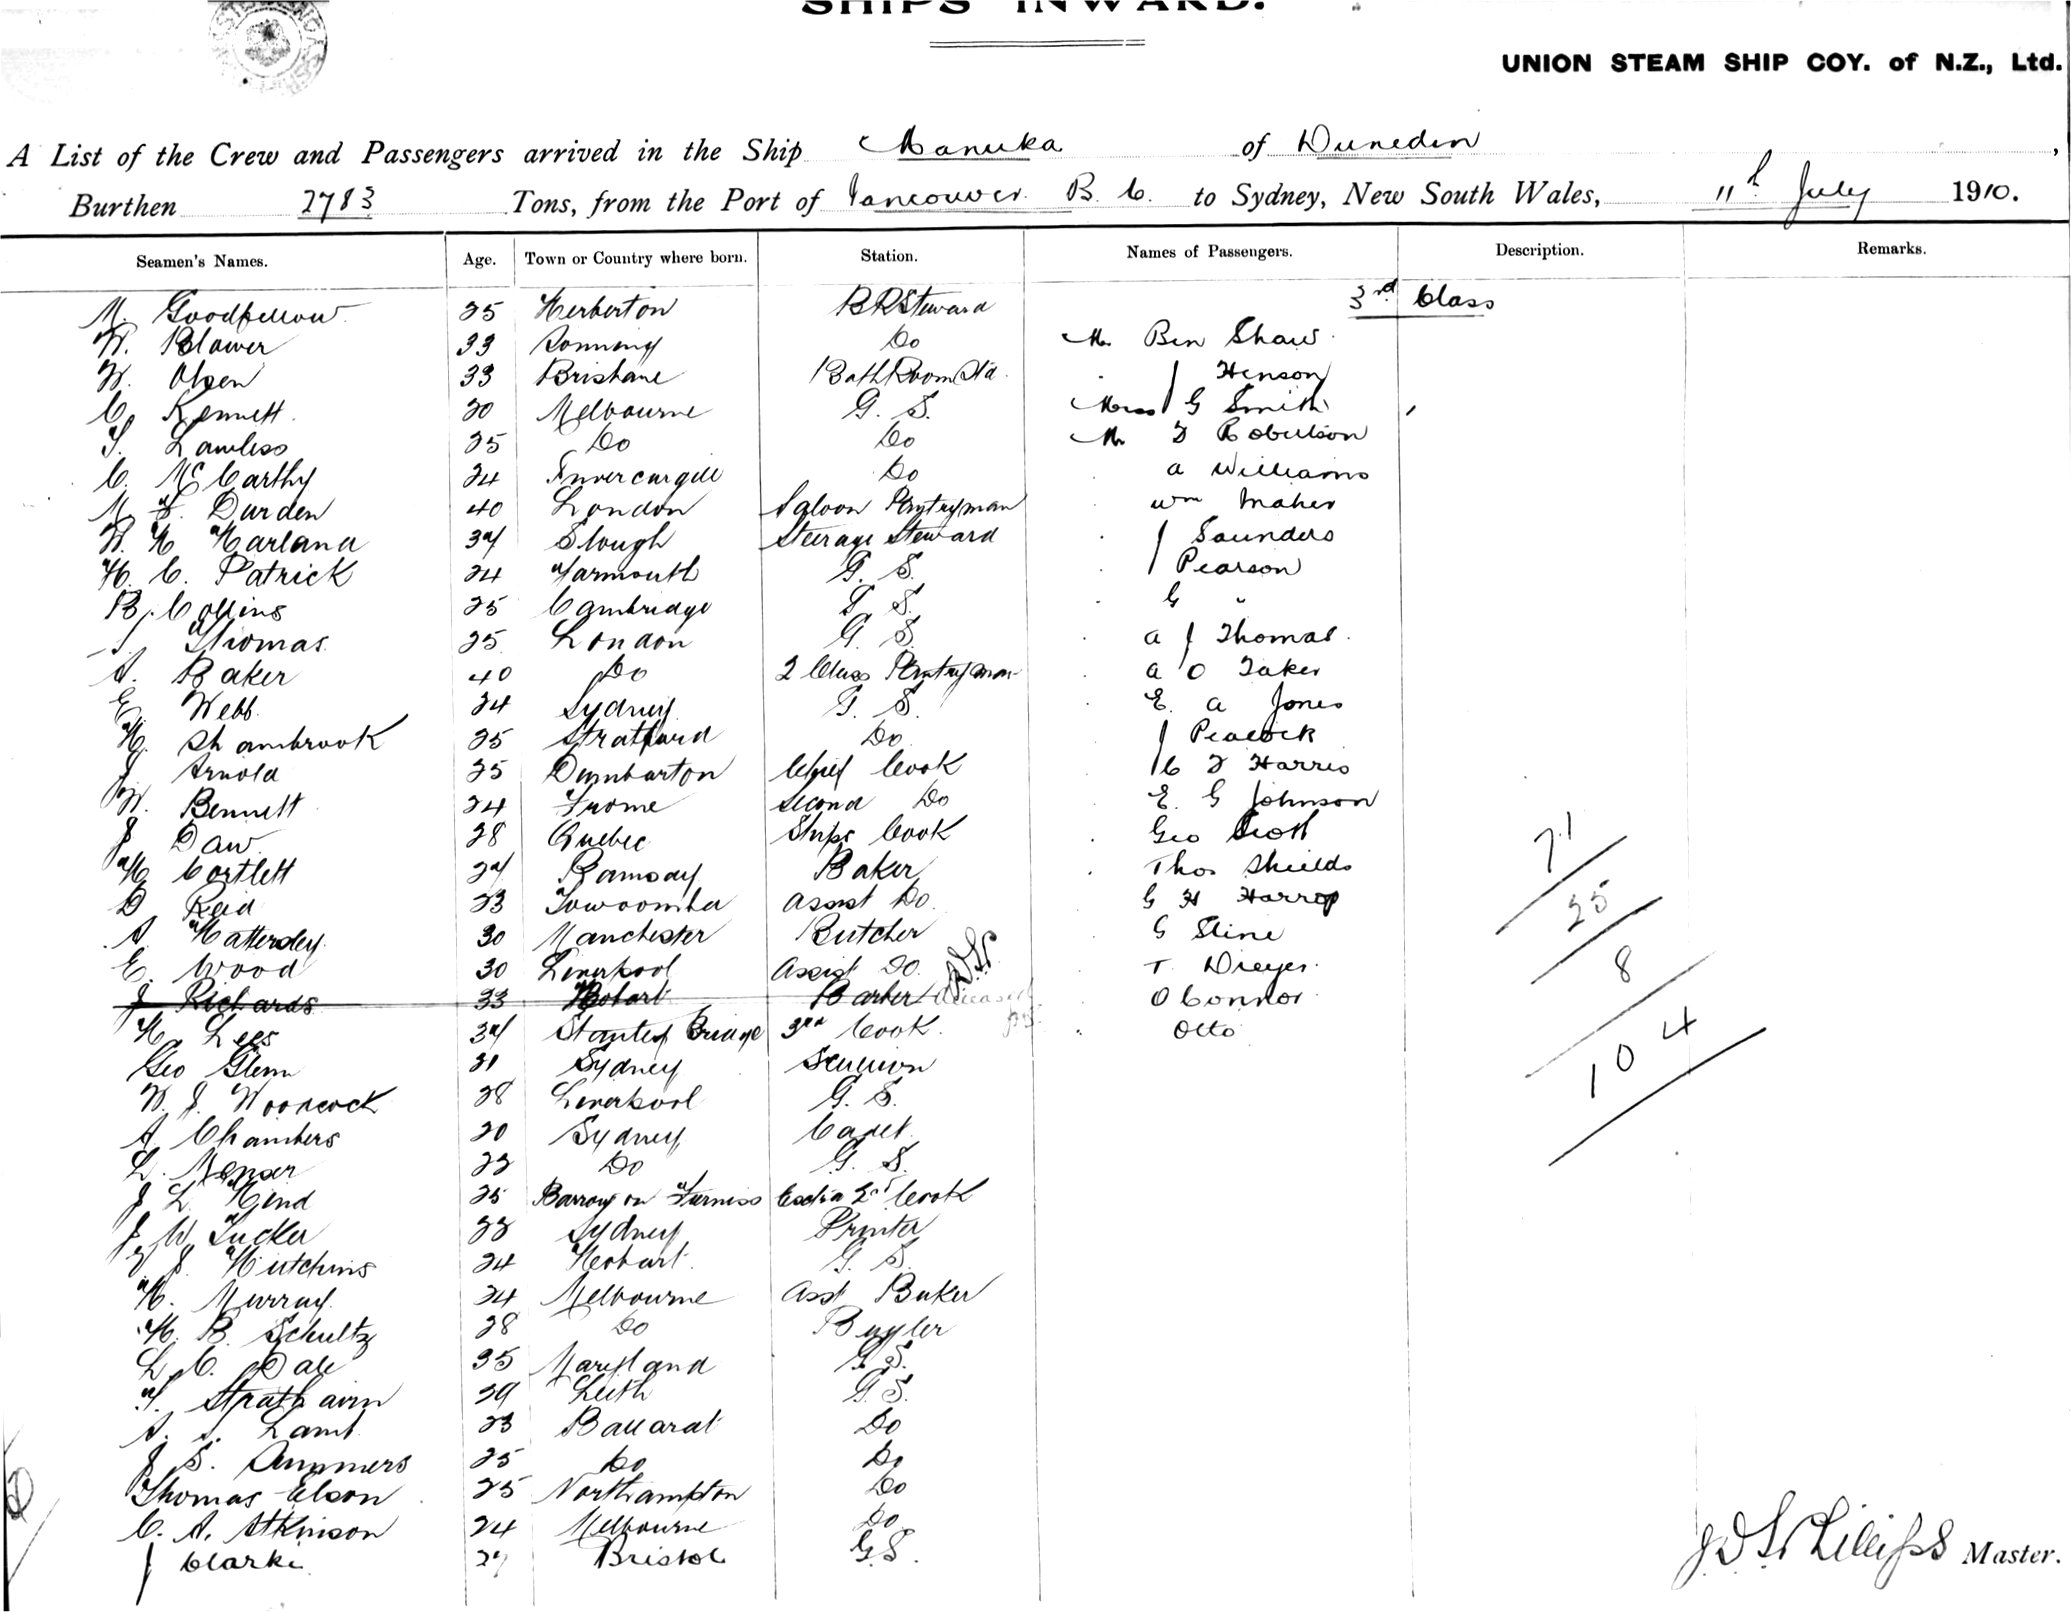 SHIPS INWARD.
UNION STEAM SHIP COY. of N.Z., Ltd.
A List of the Crew and Passengers arrived in the Ship Manuka of Dunedin,
Burthen 2783 Tons, from the Port of Vancouver B. C. to Sydney, New South Wales, 11th July 1910.
Seamen's Names. Age. Town or Country where born. Station. Names of Passengers. Description. Remarks.
3rd Class
M. Goodfellow 25 Herberton B R Steward
W. Blower 33 Sonning Do Mr Ben Shaw
W. Olsen 33 Brisbane Bath Room Std. J Henson
C. Kennett 20 Melbourne G. S. Miss G Smith
T. Lawless 25 Do Do Mr D Robertson
C. McCarthy 24 Invercargill Do A Williams
M. F. Durden 40 London Saloon Pantryman Wm Maher
W. H Harland 34 Slough Steerage Steward J Saunders
H. C. Patrick 24 Yarmouth G. S. J Pearson
B. Collins 25 Cambridge G. S. G "
Thomas 25 London G. S. A J Thomas
A. Baker 40 Do 2 Class Pantryman A O Taker
E Webb 24 Sydney G. S. E. A Jones
H. Shambrook 25 Stratford Do J Peacock
J Arnold 25 Dumbarton Chief Cook C F Harris
W. Bennett 24 Frome Second Do E. G Johnson
J Daw 28 Quebec Ships Cook Geo Scott
H Cortlett 27 Ramsay Baker Thos Shields
D Reid 23 Towoomba Assist Do. G H Harrop
A. Hattersley 30 Manchester Butcher G Stine
E. Wood 30 Liverpool Assist Do. T. Dreyer
J Richards 33 Hobart Barber Deceased O Connor
H. Lees 34 Stanley Bridge 3rd Cook Otto
Geo Glenn 21 Sydney Scullion
W. J. Woodcock 28 Liverpool G. S.
A Chambers 20 Sydney Cadet
L. 22 Do G. S.
J L Hind 25 Barrow on Furniss Extra 2nd Cook
J W. Tucker 22 Sydney Printer
J. Hutchins 24 Hobart G. S.
H. Murray 24 Melbourne Asst Baker
H. B. Schultz 28 Do Bugler
L C. Dale 35 Maryland G S.
T. Strathairn 29 Leith G. S.
A. Lamb 23 Ballarat Do
J S. Ammers 25 Do Do
Thomas Elson 25 Northampton Do
C. A. Atkinson 24 Melbourne Do
J Clarke 27 Bristol G. S.
71
25
8
104
Master.